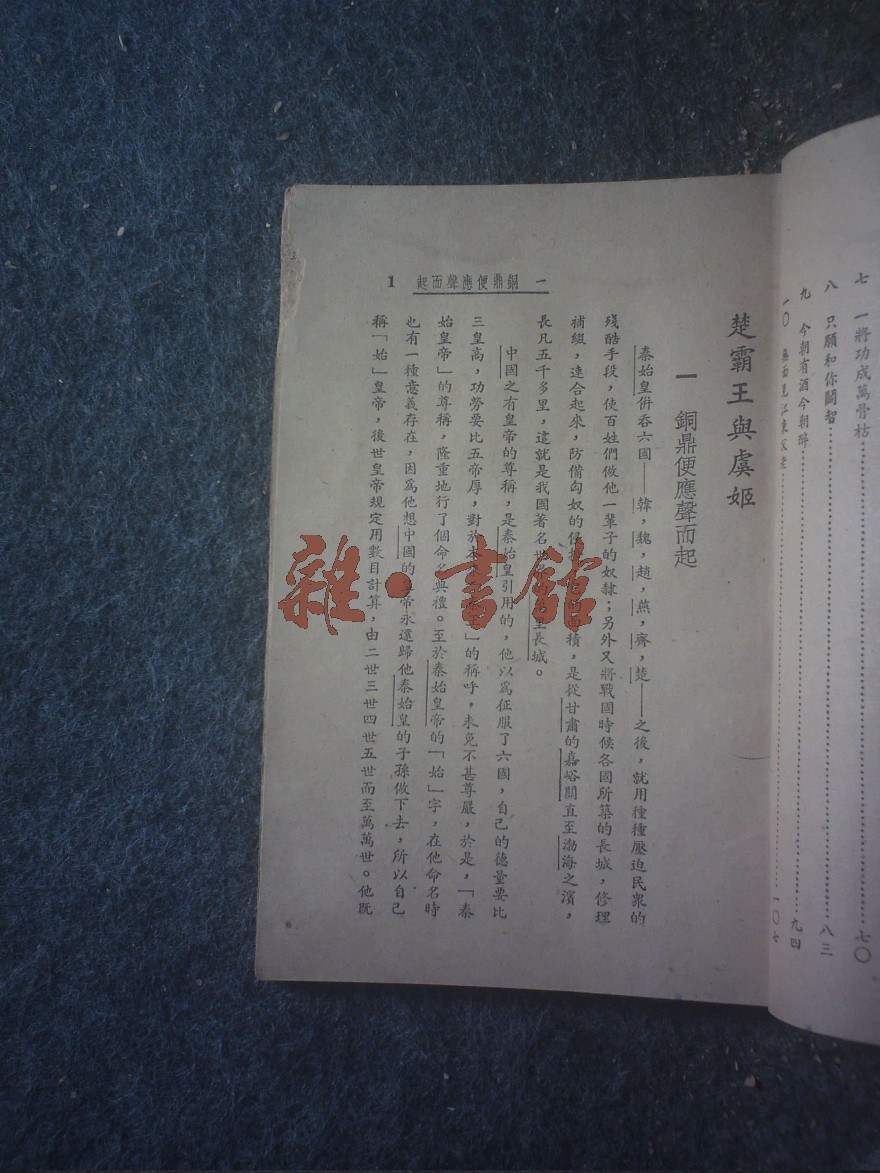 七 一將功成萬骨枯 七〇
八 只願和你鬭智 八三
九 今朝有酒今朝醉 九四
一〇 無面見江東父老 一〇七
楚霸王與虞姬
一 銅鼎便應聲而起
秦始皇併吞六國——韓，魏，趙，燕，齊，楚——之後，就用種種壓迫民衆的
殘酷手段，使百姓們做他一輩子的奴隸；另外又將戰國時候各國所築的長城，修理
補綴，連合起來，防備匈奴的侵 積，是從甘肅的嘉峪關直至渤海之濱，
長凡五千多里，這就是我國著名世 里長城。
中國之有皇帝的尊稱，是秦始皇引用的，他以爲征服了六國，自己的德量要比
三皇高，功勞要比五帝厚，對於本 」的稱呼，未免不甚尊嚴，於是，「秦
始皇帝」的尊稱，隆重地行了個命名典禮。至於秦始皇帝的「始」字，在他命名時
也有一種意義存在，因爲他想中國的皇帝永遠歸他秦始皇的子孫做下去，所以自己
稱「始」皇帝，後世皇帝規定用數目計算，由二世三世四世五世而至萬萬世。他既
一 銅鼎便應聲而起 1
雜·書館